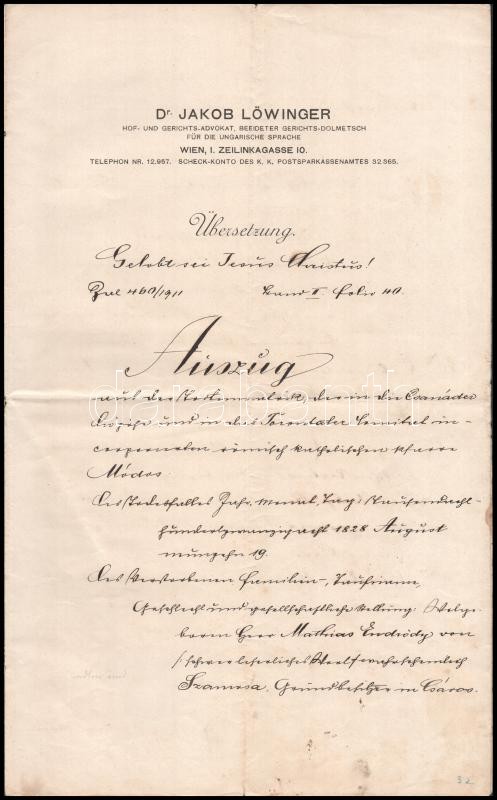 Dr. JAKOB LÖWINGER
HOF- UND GERICHTS-ADVOKAT, BEEIDETER GERICHTS-DOLMETSCH
FÜR DIE UNGARISCHE SPRACHE
WIEN, I. ZEILINKAGASSE 10.
TELEPHON NR. 12.957. SCHECK-KONTO DES K. K. POSTSPARKASSENAMTES 32.365.
Übersetzung.
Gelobt sei Jesus Christus!
Zal 460/1911 Band II. folio 40.
Auszug
aus der Sterbematrik, der in die Csanáder
Diözese und in das Torontaler Comitat in-
corporierten römisch katholischen Pfarre
Módos
Des Todesfalles Jahr, Monat, Tag: Tausendacht-
hundertzwanzigacht 1828 August
neunzehn 19.
Des Verstorbenen Familien-, Taufname,
Geschlecht und gesellschaftliche Stellung: Wolge-
boren Herr Mathias Endrödy von
/: schwer leserliches Wort wahrscheinlich
Szamosa, Grundbesitzer in Csáros.
32